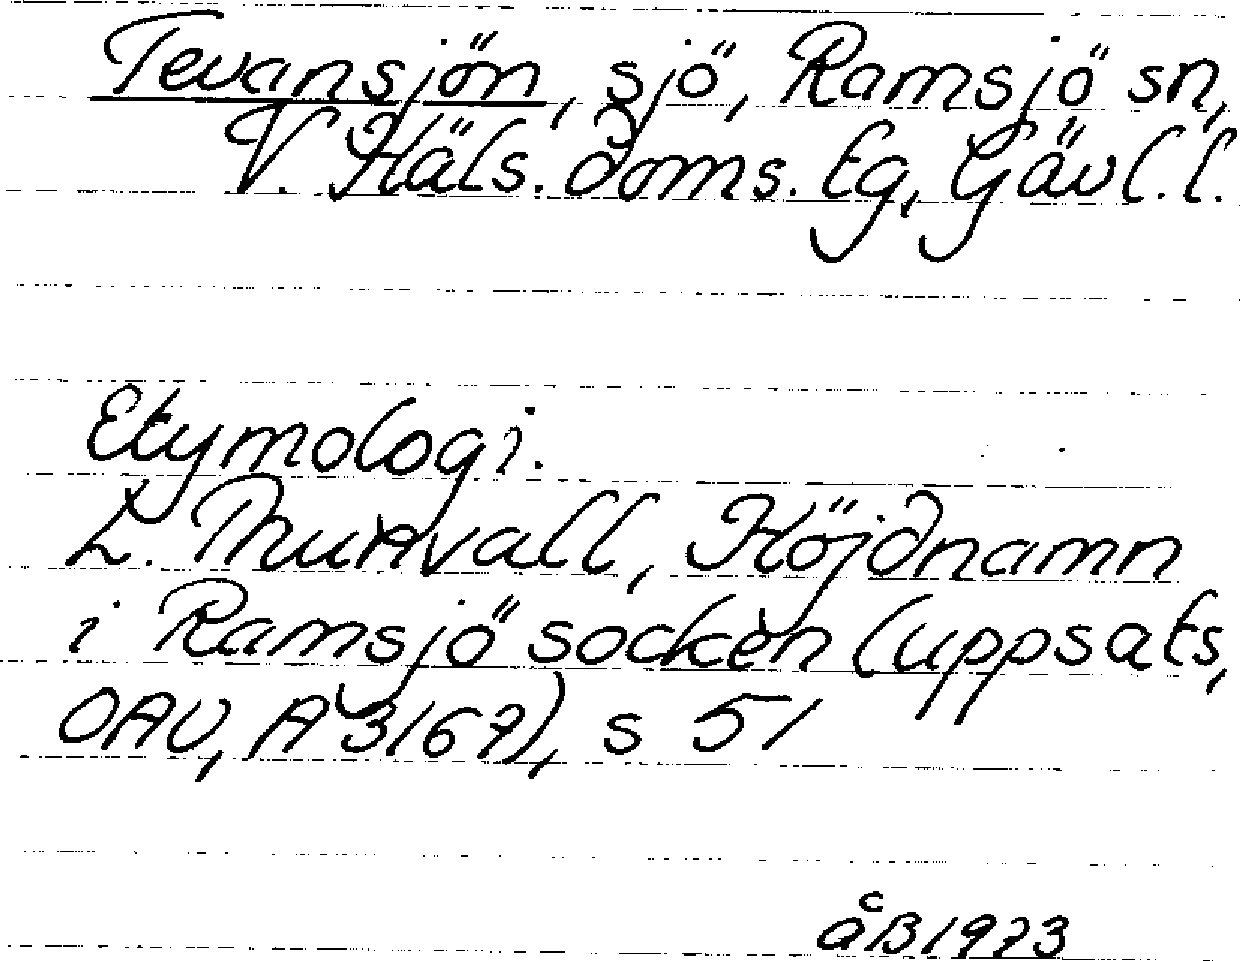 Tevansjön, sjö, Ramsjö sn,
V. Häls. doms. tg, Gävl. l.
Etymologi.
L. Thunvall, Höjdnamn
i Ramsjö socken (uppsats,
OAU, A 3167), s 51
åB 1973